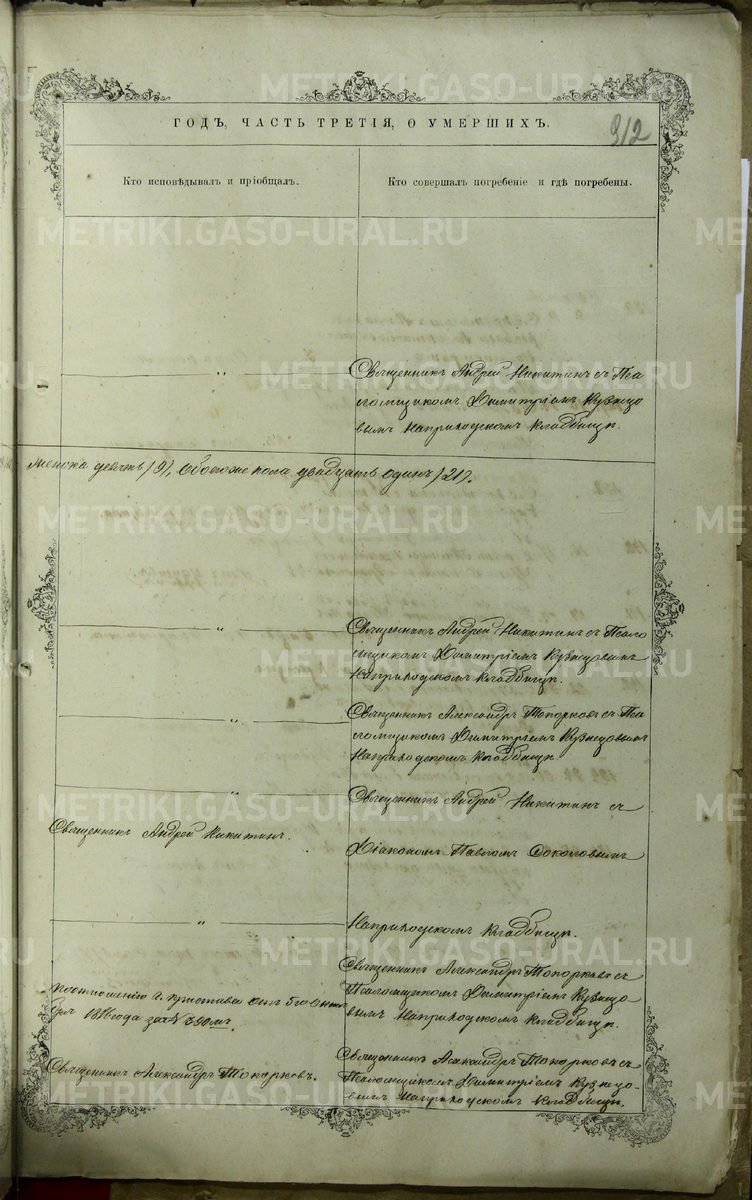 ГОДЪ, ЧАСТЬ ТРЕТІЯ, О УМЕРШИХЪ.
312
Кто исповѣдывалъ и пріобщалъ.
Кто совершалъ погребеніе и гдѣ погребены.
Священникъ Андрей Никитинъ съ Пса
ломщикомъ Димитріемъ Кузнецо
вымъ Наприходскомъ кладбищѣ.
Женска девять /9/, Обоего пола двадцать одинъ /21/.
Священникъ Андрей Никитинъ съ Псало
мщикомъ Димитріемъ Кузнецовымъ
Наприходскомъ кладбищѣ.
Священникъ Александръ Топорковъ съ Пса
ломщикомъ Димитріемъ Кузнецовымъ
Наприходскомъ кладбищѣ
Священникъ Андрей Никитинъ.
Священникъ Андрей Никитинъ съ
Діакономъ Павломъ Соколовымъ
Наприходскомъ кладбищѣ.
Поотношенію г. пристава
года за №
Священникъ Александръ Топорковъ съ
Псаломщикомъ Димитріемъ Кузнецо
вымъ Наприходскомъ кладбищѣ.
Священникъ Александръ Топорковъ.
Священникъ Александръ Топорковъ съ
Псаломщикомъ Димитріемъ Кузнецо-
вымъ Наприходскомъ кладбищѣ.
METRIKI.GASO-URAL.RU